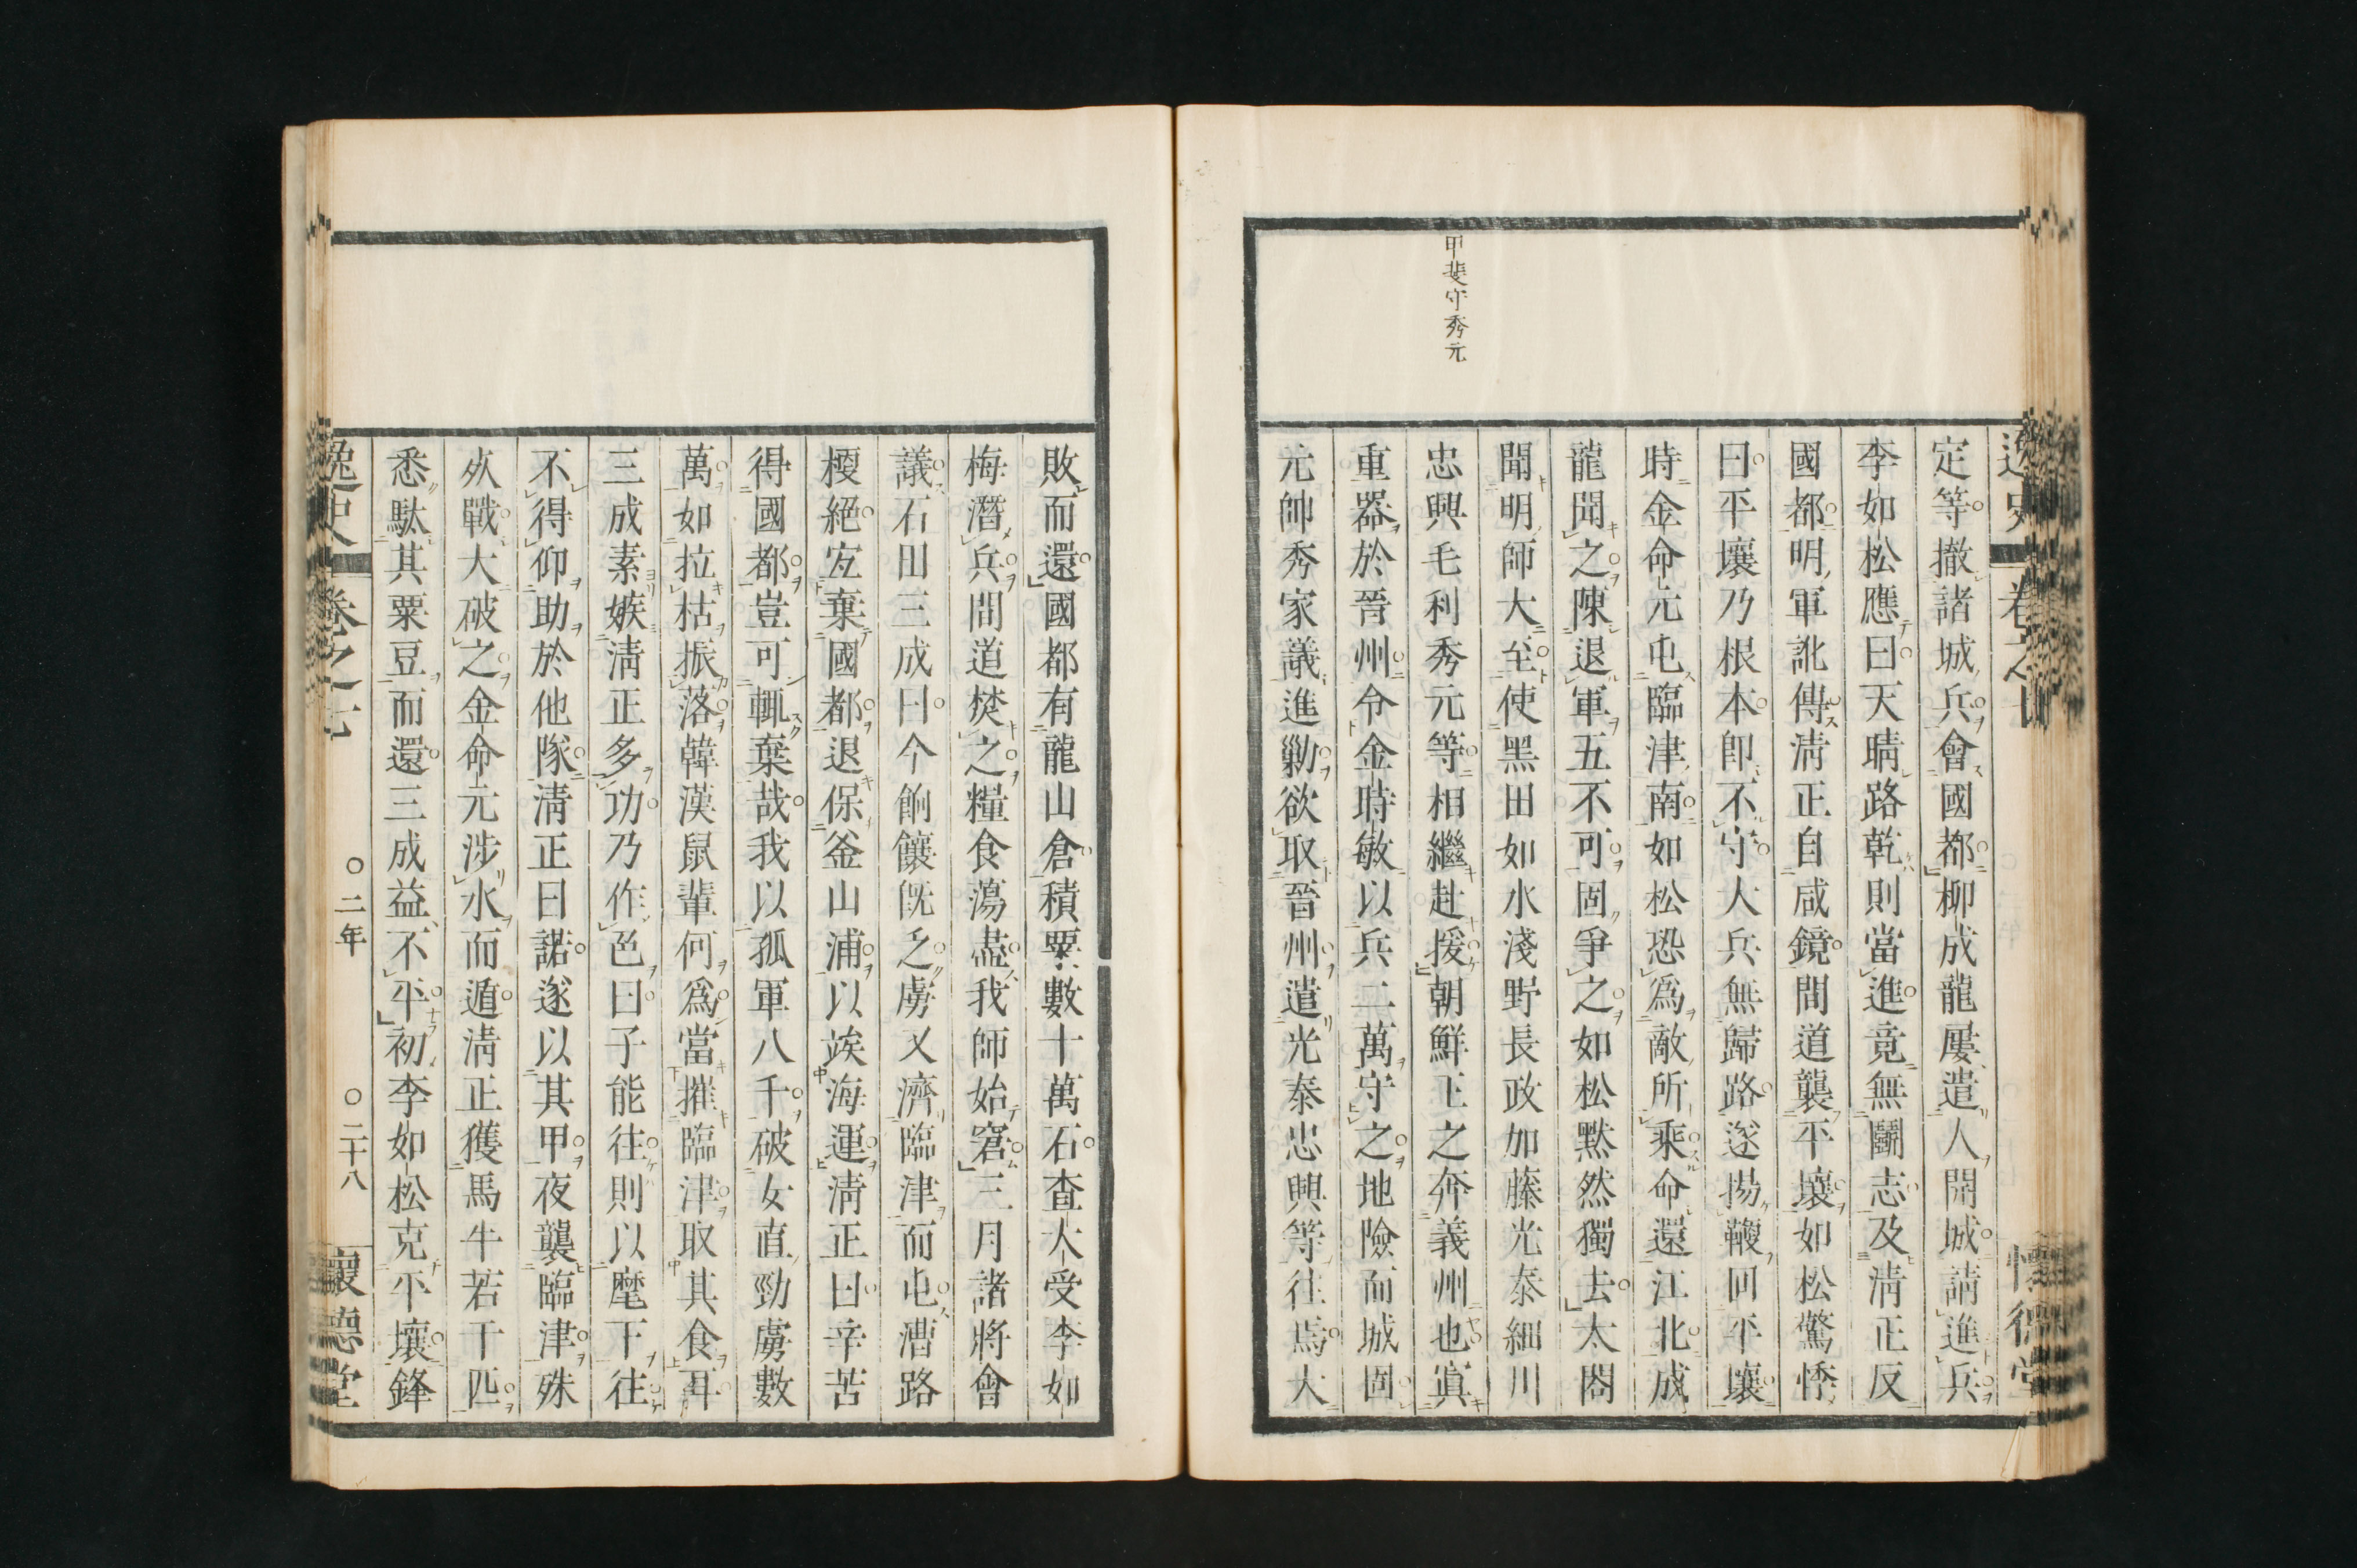 甲斐守秀元
定等撤諸城兵會國都柳成龍屢遣人開城請進兵
李如松應曰天晴路乾則當進竟無鬭志及淸正反
國都明軍訛傳淸正自咸鏡間道襲平壤如松驚悸
曰平壤乃根本卽不守大兵無歸路遂揚鞭回平壤
時金命元屯臨津南如松恐爲敵所乘命還江北成
龍聞之陳退軍五不可固爭之如松默然獨去太閤
聞明師大至使黑田如水淺野長政加藤光泰細川
忠興毛利秀元等相繼赴援朝鮮王之奔義州也寘
重器於晉州令金時敏以兵二萬守之地險而城固
元帥秀家議進勦欲取晉州遣光泰忠興等往焉大
敗而還國都有龍山倉積粟數十萬石查大受李如
梅潛兵間道焚之糧食蕩盡我師始窘三月諸將會
議石田三成曰今餉饟旣乏虜又濟臨津而屯漕路
梗絕宐棄國都退保釜山浦以竢海運淸正曰辛苦
得國都豈可輒棄哉我以孤軍八千破女直勁虜數
萬如拉枯振落韓漢鼠輩何爲當摧臨津取其食耳
三成素嫉淸正多功乃作色曰子能往則以麾下往
不得仰助於他隊淸正曰諾遂以其甲夜襲臨津殊
死戰大破之金命元涉水而遁淸正獲馬牛若干匹
悉馱其粟豆而還三成益不平初李如松克平壤鋒
逸史 卷之七 ○二年 ○二十八 懷德堂